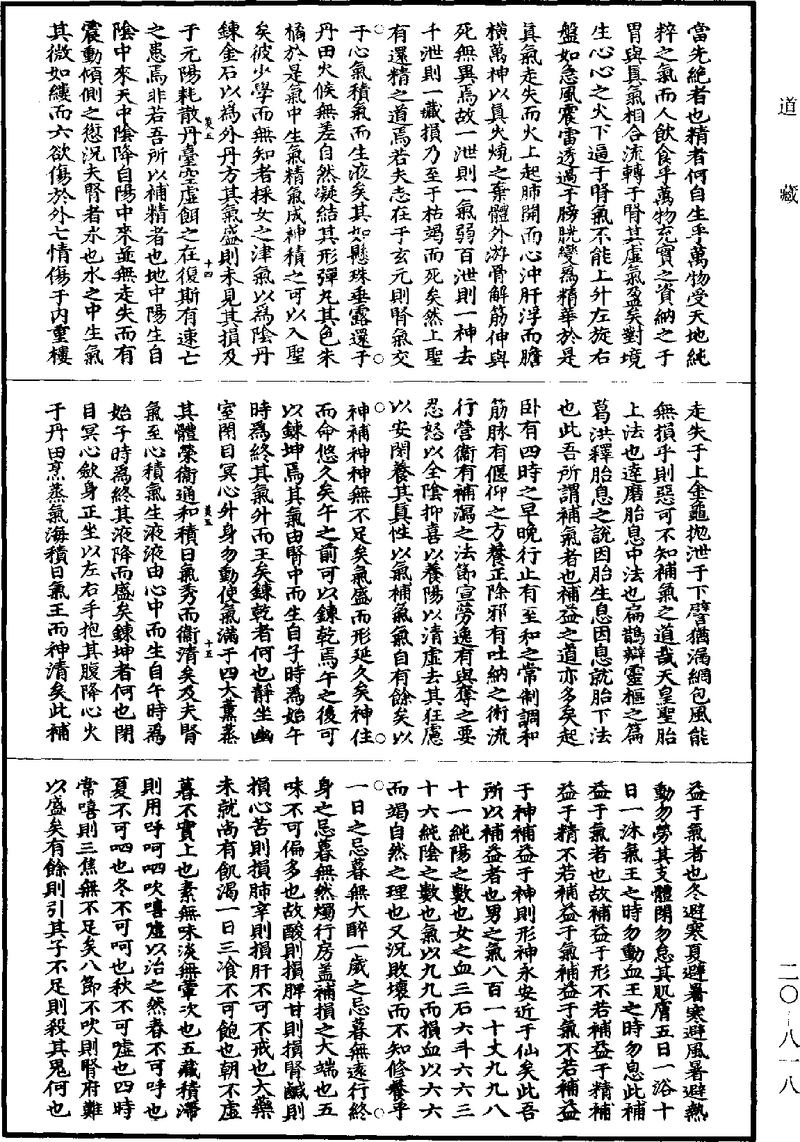 道藏
二〇-八一八
當先絶者也精者何自生乎萬物受天地純
粹之氣而人飲食乎萬物充實之資納之于
胃與真氣相合流轉于腎其虛氣盈矣對境
生心心之火下逼于腎氣不能上升左旋右
盤如急風震雷透過于膀胱變為精華於是
真氣走失而火上起肺開而心沖肝浮而膽
橫萬神以真火燒之棄體外游骨解筋伸與
死無異焉故一泄則一氣弱百泄則一神去
千泄則一藏損乃至于枯竭而死矣然上聖
有還精之道焉若夫志在于玄元則腎氣交
于心氣積氣而生液矣其如懸珠垂露還于
丹田火候無差自然凝結其形彈丸其色朱
橘於是氣中生氣精氣成神積之可以入聖
矣彼少學而無知者採女之津氣以為陰丹
鍊金石以為外丹方其氣盛則未見其損及
于元陽耗散丹臺空虛餌之在復斯有速亡
之患焉非若吾所以補精者也地中陽生自
陰中來天中陰降自陽中來並無走失而有
震動傾側之愆況夫腎者水也水之中生氣
其微如縷而六欲傷於外七情傷于内重樓
走失于上金龜拋泄于下譬猶漏網包風能
無損乎則惡可不知補氣之道哉天皇聖胎
上法也達磨胎息中法也扁鵲辯靈樞之篇
葛洪釋胎息之說因胎生息因息就胎下法
也此吾所謂補氣者也補益之道亦多矣起
卧有四時之早晚行止有至和之常制調和
筋脉有偃仰之方養正除邪有吐納之術流
行營衞有補瀉之法節宣勞逸有與奪之要
忍怒以全陰抑喜以養陽以清虛去其狂慮
以安閑養其真性以氣補氣氣自有餘矣以
神補神神無不足矣氣盛而形延久矣神住
而命悠久矣午之前可以鍊乾焉午之後可
以鍊坤焉其氣由腎中而生自子時為始午
時為終其氣升而王矣鍊乾者何也靜坐幽
室閉目冥心升身勿動使氣滿于四大薰蒸
其體榮衞通和積日氣秀而衞清矣及夫腎
氣至心積氣生液液由心中而生自午時為
始子時為終其液降而盛矣鍊坤者何也閉
目冥心斂身正坐以左右手抱其腹降心火
于丹田烹蒸氣海積日氣王而神清矣此補
益于氣者也冬避寒夏避暑寒避風暑避熱
動勿勞其支體閑勿怠其肌膚五日一浴十
日一沐氣王之時勿動血王之時勿息此補
益于氣者也故補益于形不若補益于精補
益于精不若補益于氣補益于氣不若補益
于神補益于神則形神永安近于仙矣此吾
所以補益者也男之氣八百一十丈九九八
十一純陽之數也女之血三石六斗六六三
十六純陰之數也氣以九九而損血以六六
而竭自然之理也又況敗壞而不知修養乎
一日之忌暮無大醉一歲之忌暮無遠行終
身之忌暮無然燭行房蓋補損之大端也五
味不可偏多也故酸則損脾甘則損腎鹹則
損心苦則損肺辛則損肝不可不戒也大藥
未就尚有飢渴一日三飡不可飽也朝不虛
暮不實上也素無味淡無葷次也五藏積滯
則用呼呵呬吹嘻噓以治之然春不可呼也
夏不可呬也冬不可呵也秋不可噓也四時
常嘻則三焦無不足矣八節不吹則腎府難
以盛矣有餘則引其子不足則殺其鬼何也